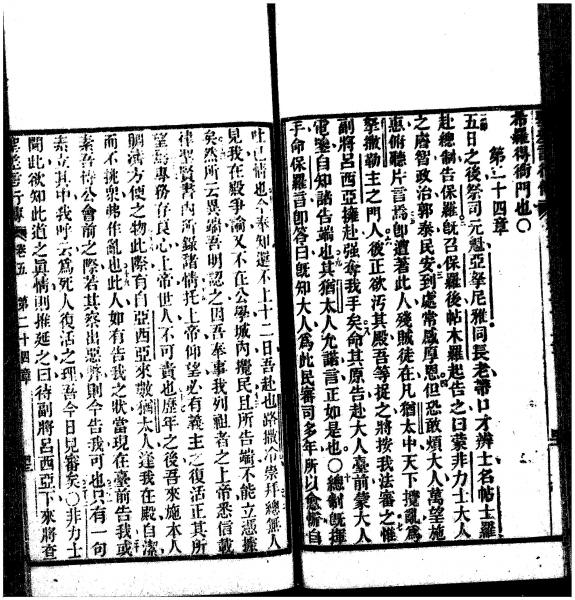 希羅得衙門也〇
第二十四章
五日之後祭司元魁亞拏尼雅同長老帶口才辨士名帖土羅
赴總制告保羅旣召保羅後帖木羅起告之曰蒙非力士大人
之廕智政治郭泰民安到處常感厚恩但恐敢煩大人萬望施
惠俯聽片言焉卽遭著此人殘賊徒在凡猶太中天下攪亂爲
拏撒勒主之門人彼正欲汚其殿吾等捉之將按我法審之惟
副將呂西亞擁赴强奪我手矣命其原告赴大人臺前蒙大人
電鑒自知諸告端也其猶太人允議言正如是也〇總制旣揮
手命保羅言卽答曰旣知大人爲此民審司多年所以愈慚自
吐已情也今奉知超不上十二日吾赴也路撒冷崇拜總無人
見我在殿爭論又不在公學城內攪民且所告端不能立憑據
矣然所云異端吾明認之因吾奉事我列祖者之上帝悉信載
律聖賢書內所錄諸情托上帝仰望必有義主之復活正其所
望焉專務存良心上帝世人不可責也歷年之後吾來施本人
賙濟方使之物此際有自亞西亞來數猶太人逢我在殿自潔
而不挑衆弗作亂也此人如有告我之狀當現在臺前告我或
素吾停公會前之際若其察出惡弊則今告我可也只有一句
素立其中我呼云爲死人復活之理吾今日見審矣〇非力士
聞此欲知此道之眞情則推延之曰待副將呂西亞下來將查
卷五 第二十四章